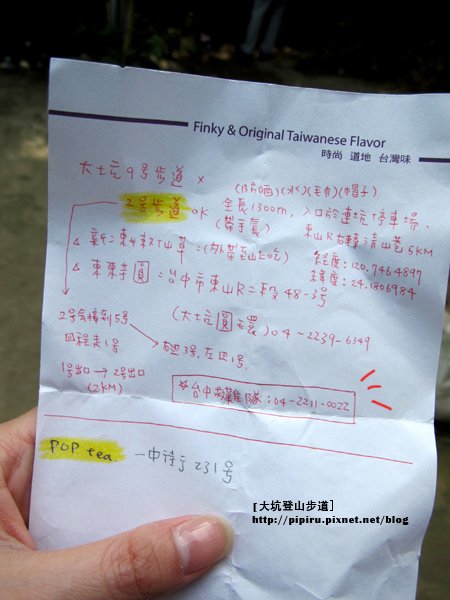 Finky & Original Taiwanese Flavor
時尚 道地 台灣味
大坑9号步道 x
(防晒)(水)(毛巾)(帽子)
2号步道 OK
全長1300m, 入口於連坑停車場,
(帶手套)
東山R右轉清山巷5KM
(外帶至山上吃)
經度:120.7464897
緯度:24.1806984
△ 東東芋圓=台中市東山R二段48-3号
(大坑圓環) 04-2239-6349
2号会接到5号
回程走1号
右边3号,左边1号.
1号出口 → 2号出口
(2KM)
☆台中救難隊:04-2211-0022
POP tea. 一中街231号
[大坑登山步道]
http://pipiru.pixnet.net/blog